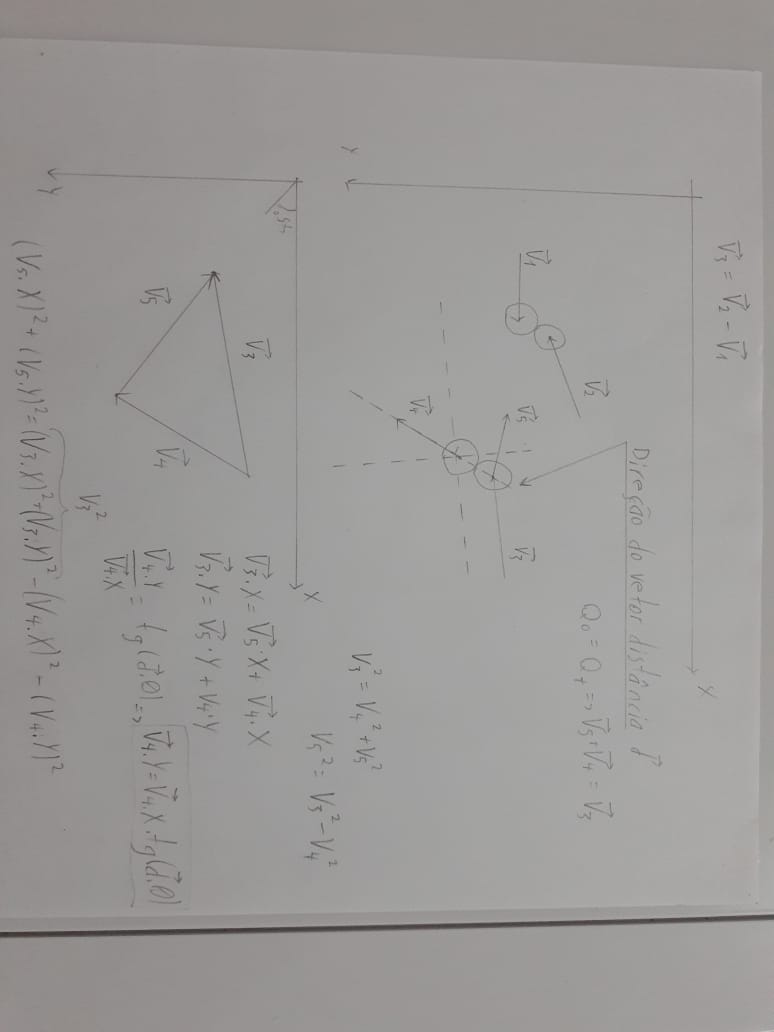 V⃗3 = V⃗2 - V⃗1
X
Direção do vetor distância d⃗
Q0 = Q+ => V⃗5 + V⃗4 = V⃗3
V⃗2
V⃗1
V⃗5
V⃗3
V⃗4
Y
V3² = V4² + V5²
V5² = V3² - V4²
X
V⃗3
V⃗4
V⃗5
V⃗3.X = V⃗5.X + V⃗4.X
V⃗3.Y = V⃗5.Y + V4.Y
V⃗4.Y / V⃗4.X = tg(d⃗.θ) => V⃗4.Y = V⃗4.X.tg(d⃗.θ)
V3²
Y
(V5.X)² + (V5.Y)² = (V3.X)² + (V3.Y)² - (V4.X)² - (V4.Y)²